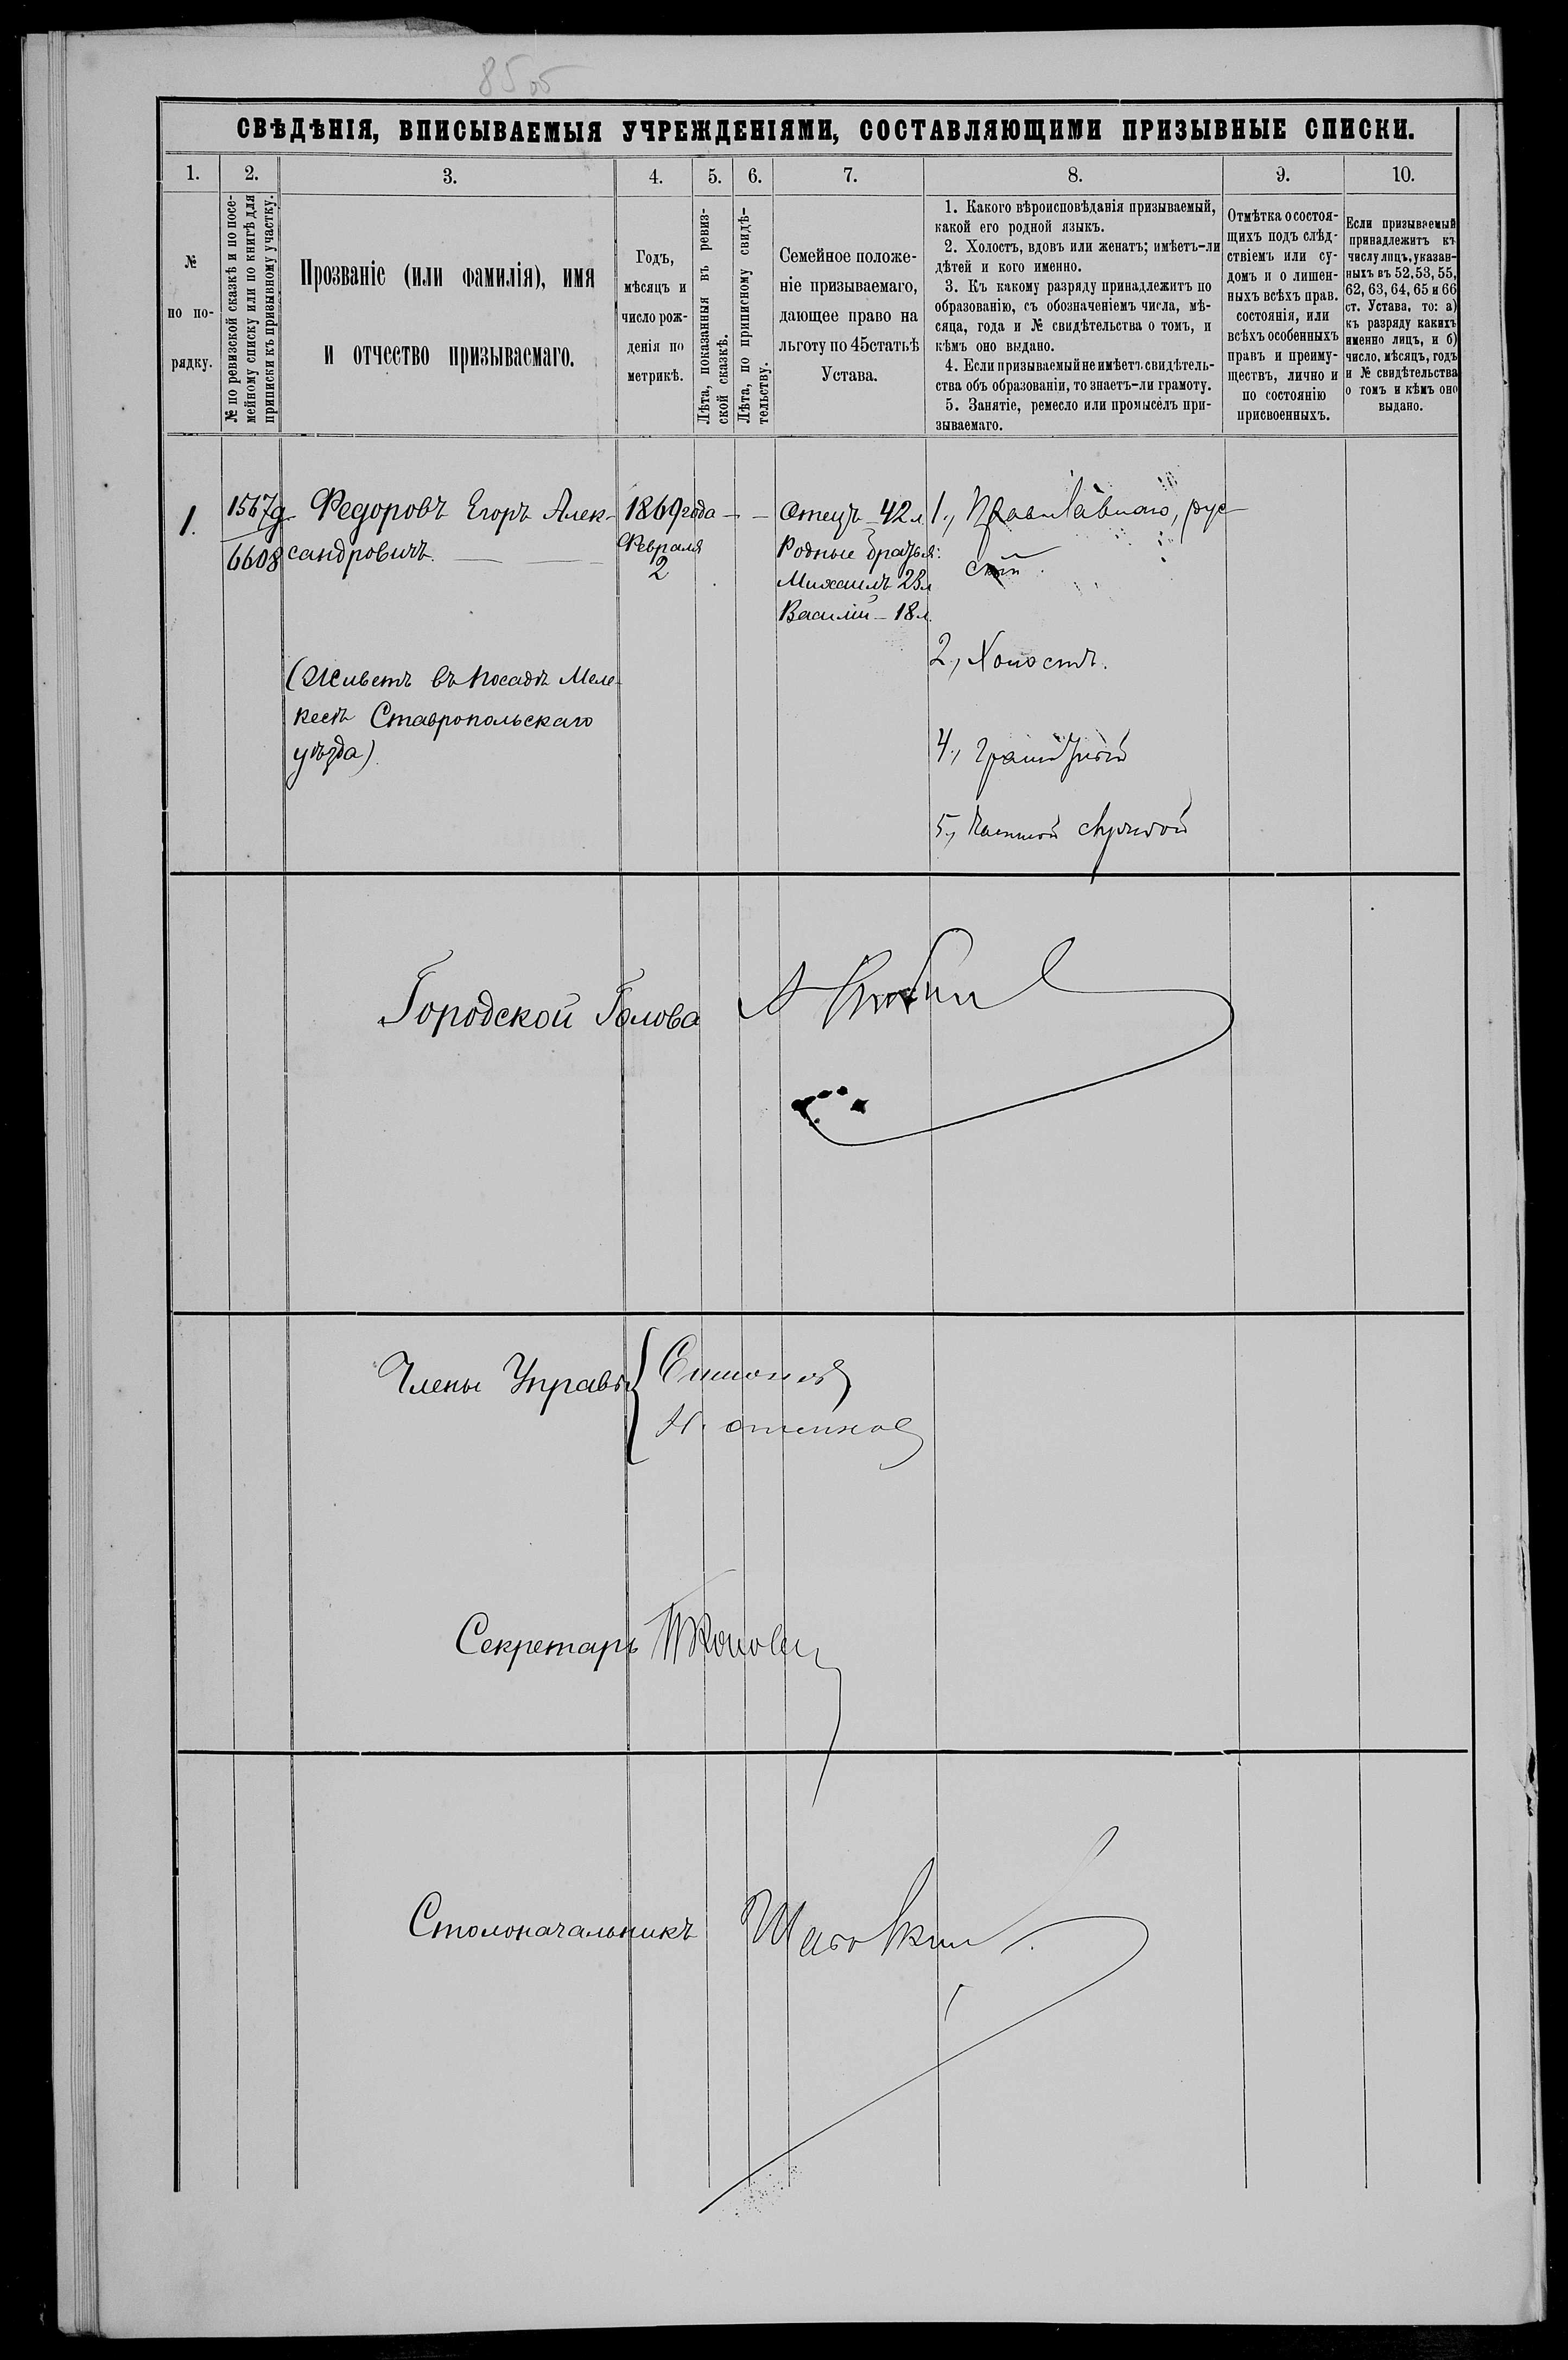 8505
СВѢДѢНІЯ, ВПИСЫВАЕМЫЯ УЧРЕЖДЕНІЯМИ, СОСТАВЛЯЮЩИМИ ПРИЗЫВНЫЕ СПИСКИ.
1.
2.
3.
4.
5.
6.
7.
8.
9.
10.
№
по по-
рядку.
№ по ревизской сказкѣ и по посе-
мейному списку или по книгѣ для
приписки къ призывному участку.
Прозваніе (или фамилія), имя
и отчество призываемаго.
Годъ,
мѣсяцъ и
число рож-
денія по
метрикѣ.
Лѣта, показанныя въ ревиз-
ской сказкѣ.
Лѣта, по приписному свидѣ-
тельству.
Семейное положе-
ніе призываемаго,
дающее право на
льготу по 45 статьѣ
Устава.
1. Какого вѣроисповѣданія призываемый,
какой его родной языкъ.
2. Холостъ, вдовъ или женатъ; имѣетъ-ли
дѣтей и кого именно.
3. Къ какому разряду принадлежитъ по
образованію, съ обозначеніемъ числа, мѣ-
сяца, года и № свидѣтельства о томъ, и
кѣмъ оно выдано.
4. Если призываемый не имѣетъ свидѣтель-
ства объ образованіи, то знаетъ-ли грамоту.
5. Занятіе, ремесло или промыселъ при-
зываемаго.
Отмѣтка о состоя-
щихъ подъ слѣд-
ствіемъ или су-
домъ и о лишен-
ныхъ всѣхъ прав.
состоянія, или
всѣхъ особенныхъ
правъ и преиму-
ществъ, лично и
по состоянію
присвоенныхъ.
Если призываемый
принадлежитъ къ
числу лицъ, указан-
ныхъ въ 52, 53, 55,
62, 63, 64, 65 и 66
ст. Устава, то: а)
къ разряду какихъ
именно лицъ, и б)
число, мѣсяцъ, годъ
и № свидѣтельства
о томъ и кѣмъ оно
выдано.
1.
1567
6608
Федоровъ Егоръ Алек-
сандровичъ.
(Живетъ въ посадѣ Меле-
кесѣ Ставропольскаго
уѣзда)
1869 года
Февраля
2
Отецъ - 42 л.
Родные братья:
Михаилъ 23 л
Василій - 18 л.
1., Православнаго, рус-
скій.
2., Холостъ.
4., Грамотный
5., Частной службой
Городской Голова
Члены Управы
Секретарь
Столоначальникъ